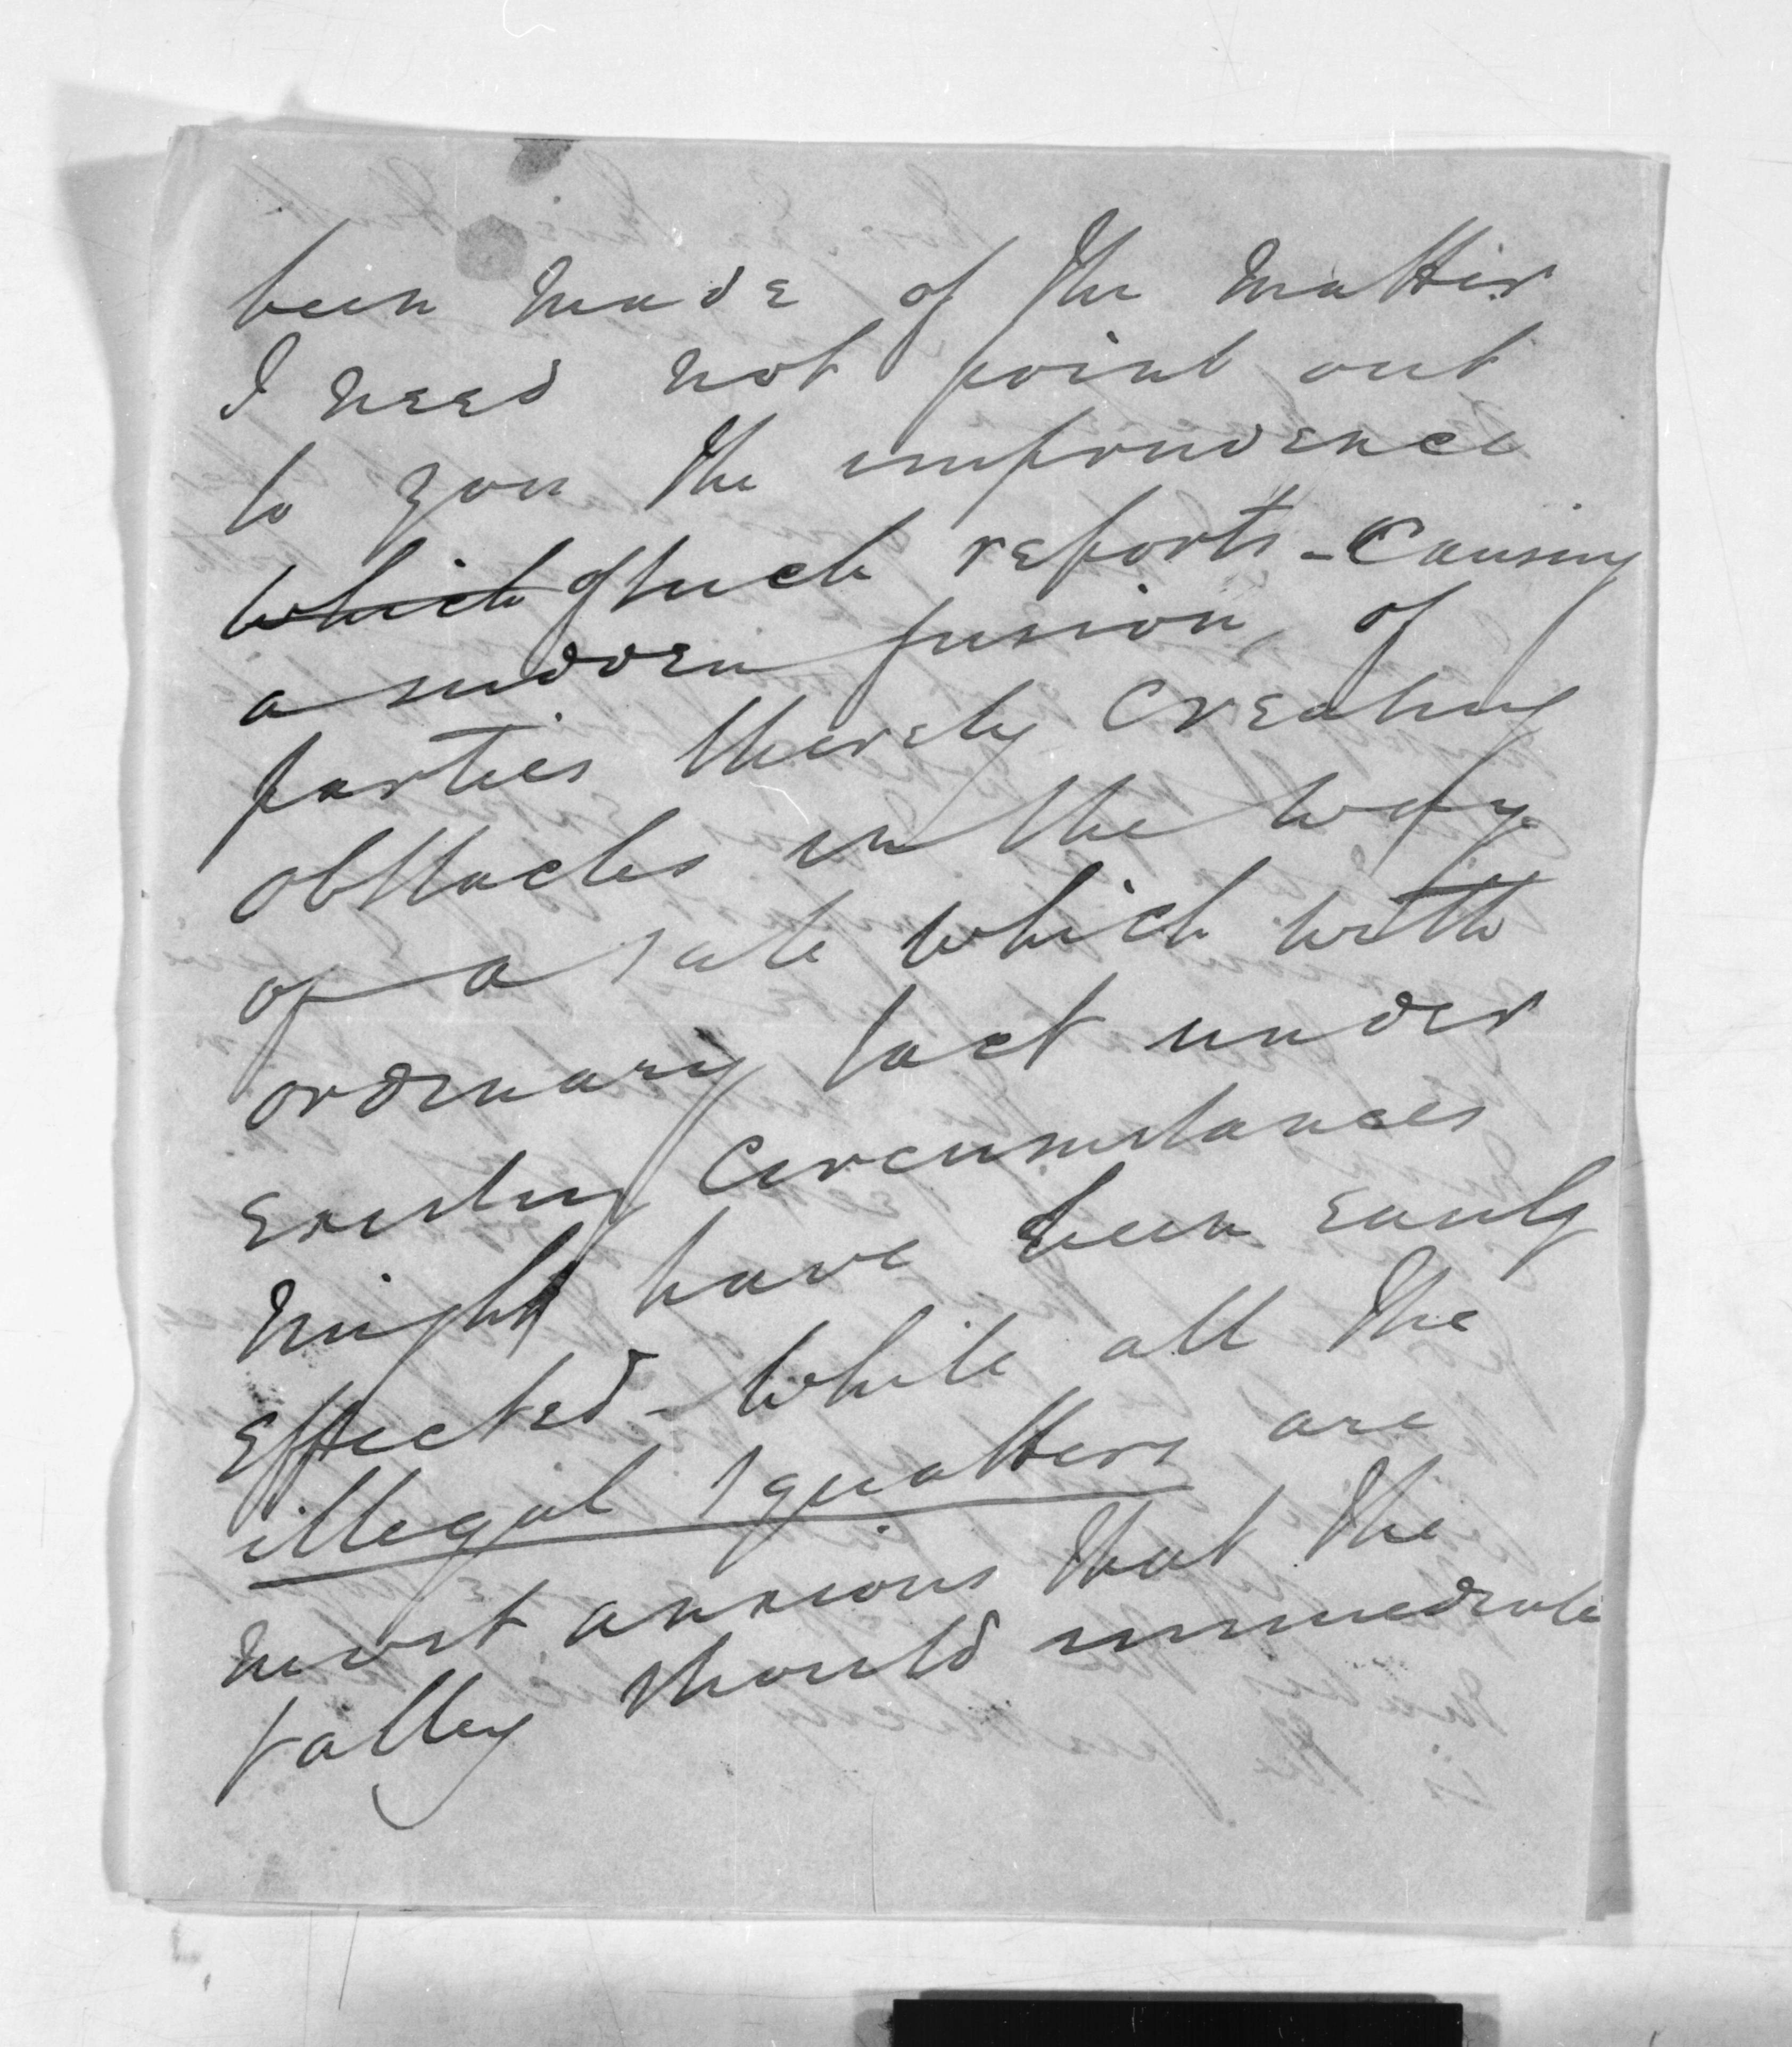 been made of the matter
I need not point out
to you the imprudence
which of such reports - Causing
a sudden fusion, of
parties thereby creating
obstacles in the way
of a sale which with
ordinary tact under
existing circumstances
might have been easily
effected - while all the
illegal squatters are
most anxious that the
valley should immediate